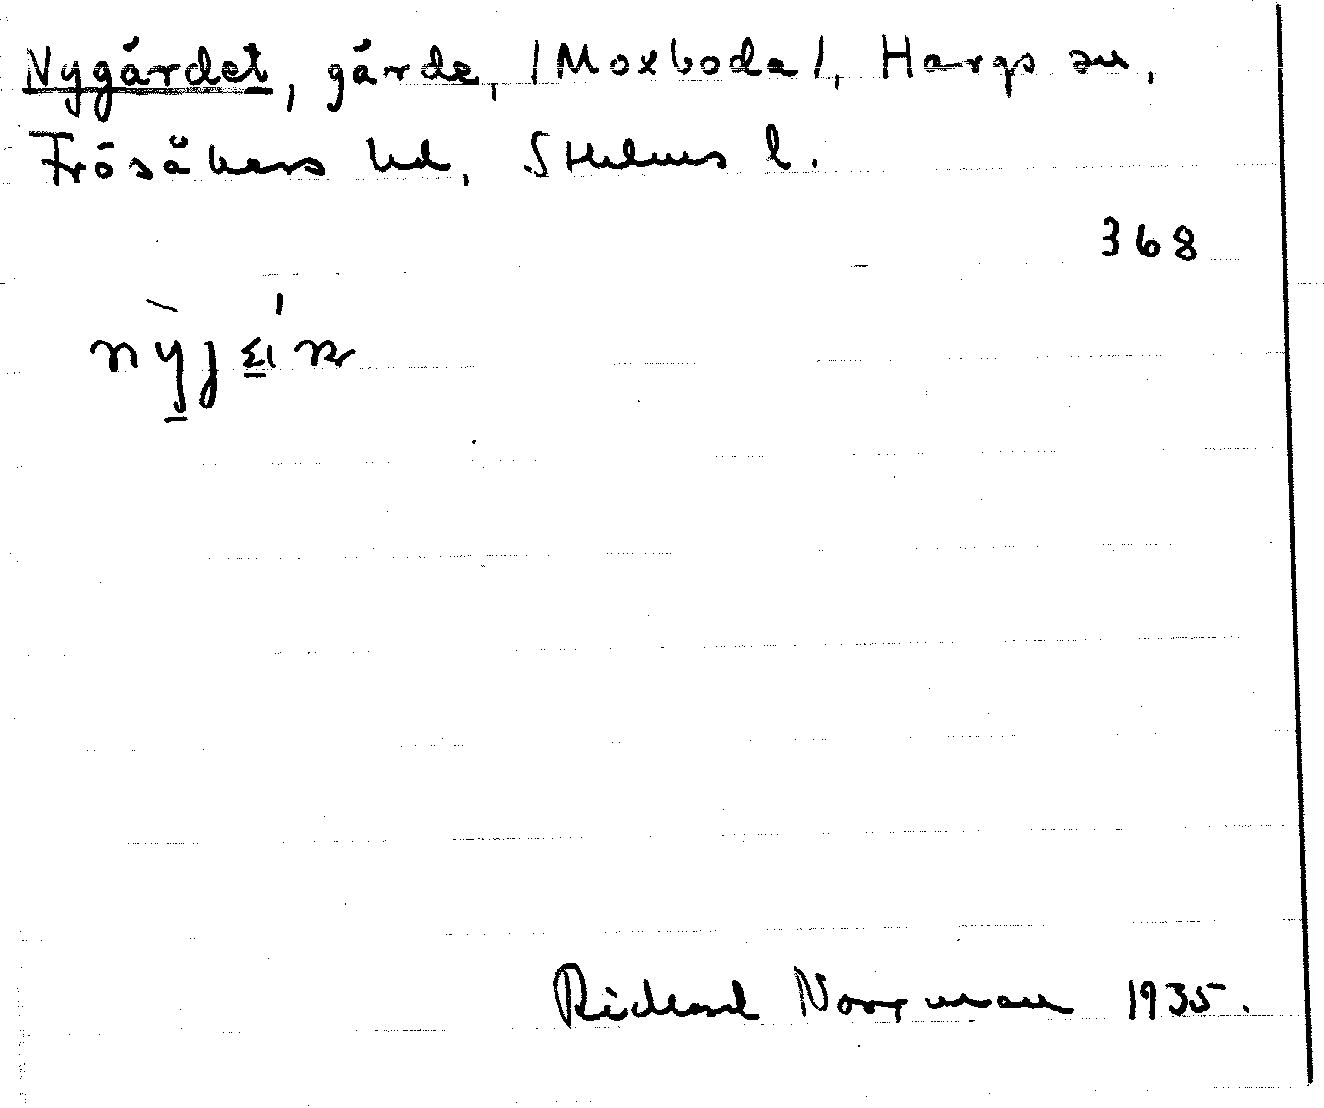 Nygärdet, gärde, /Moxboda/, Hargs sn,
Frösåkers hd, Sthlms l.
368
Richard Norrman 1935.